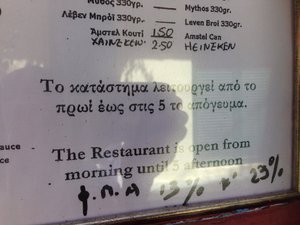 Μύθος 330γρ. Mythos 330gr.
Λέβεν Μπρόϊ 330γρ. Leven Broi 330gr.
Άμστελ Κουτί 150 Amstel Can
ΧΑΙΝΕΣΚΕΝ 2.50 HEINESKEN
Το κατάστημα λειτουργεί από το
πρωί έως στις 5 το απόγευμα.
auce
uce
The Restaurant is open from
morning until 5 afternoon
Φ.Π.Α 13% κ' 23%